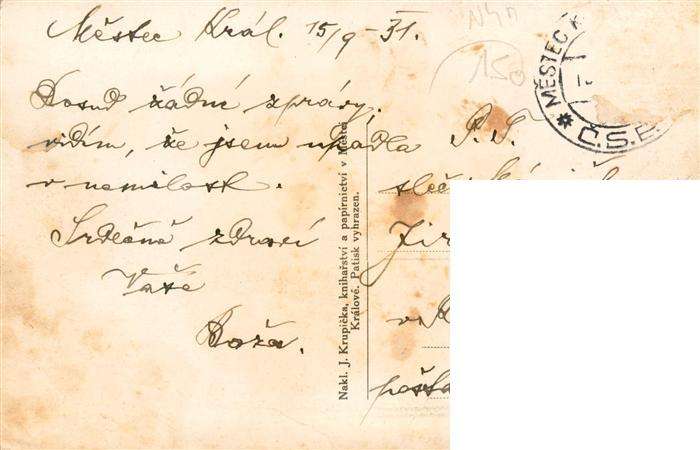 Městec Král. 15/9 - 31.
Dosud žádné zprávy.
vidím, že jsem upadla
v nemilost.
Srdečně zdraví
Vaše
Boža.
Nakl. J. Krupička, knihařství a papírnictví v Městci
Králové. Patisk vyhrazen.
150
MĚSTEC K
Č.S.
P. T.
Jir
pošta